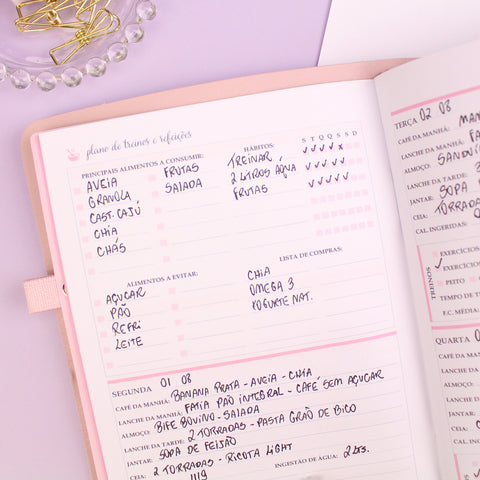 plano de treinos e refeições
PRINCIPAIS ALIMENTOS A CONSUMIR:
AVEIA
GRANOLA
CAST. CAJÚ
CHÍA
CHÁS
FRUTAS
SALADA
HÁBITOS:
S T Q Q S S D
TREINAR ✓ ✓ ✓ ✓ x
2 LITROS ÁQUA ✓ ✓ ✓ ✓ ✓
FRUTAS ✓ ✓ ✓ ✓ ✓
ALIMENTOS A EVITAR:
AÇUCAR
PÃO
REFRI
LEITE
LISTA DE COMPRAS:
CHIA
OMEGA 3
YOGURTE NAT.
SEGUNDA 01 08
CAFÉ DA MANHÃ: BANANA PRATA - AVEIA - CHIA
LANCHE DA MANHÃ: FATIA PÃO INTEGRAL - CAFÉ SEM AÇUCAR
ALMOÇO: BIFE BOVINO - SALADA
LANCHE DA TARDE: 2 TORRADAS - PASTA GRÃO DE BICO
JANTAR: SOPA DE FEIJÃO
CEIA: 2 TORRADAS - RICOTA LIGHT
1119
INGESTÃO DE ÁGUA: 2 Lts.
TERÇA 02 08
CAFÉ DA MANHÃ:
LANCHE DA MANHÃ:
ALMOÇO:
LANCHE DA TARDE:
JANTAR: SOPA
CEIA: TORRADAS
CAL. INGERIDAS:
TREINOS
EXERCÍCIOS
✓ EXERCÍCIOS
PEITO
TEMPO DE
F.C. MÉDIA:
QUARTA
CAFÉ DA MANHÃ:
LANCHE DA MANHÃ:
ALMOÇO:
LANCHE DA TARDE:
JANTAR:
CEIA: